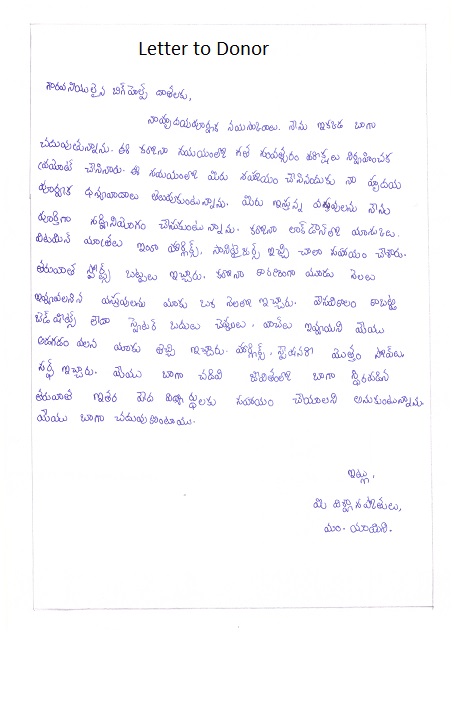 Letter to Donor
గౌరవనీయులైన బిగ్‌హెల్ప్ దాతలకు,
నా హృదయపూర్వక నమస్కారాలు. నేను ఇక్కడ బాగా
చదువుతున్నాను. ఈ కరోనా సమయంలో గత సంవత్సరం పరీక్షలు నిర్వహించక
ప్రమోట్ చేసినారు. ఈ సమయంలో మీరు సహాయం చేసినందుకు నా హృదయ
పూర్వక ధన్యవాదాలు తెలుపుకుంటున్నాను. మీరు ఇస్తున్న వస్తువులను నేను
పూర్తిగా సద్వినియోగం చేసుకుంటున్నాను. కరోనా లాక్‌డౌన్‌లో మాకు
విటమిన్ మాత్రలు ఇంకా మాస్క్స్, సానిటైజర్స్ ఇచ్చి చాలా సహాయం చేశారు.
తరువాత స్పోర్ట్స్ బట్టలు ఇచ్చారు. కరోనా కారణంగా మూడు నెలలు
ఇవ్వవలసిన వస్తువులను మాకు ఒకే నెలలో ఇచ్చారు. వేసవికాలం కాబట్టి
బెడ్‌షీట్స్ లేదా స్వెటర్ బదులు చెప్పులు, వాచీలు ఇవ్వమని మేము
అడగడం వలన మాకు తెచ్చి ఇచ్చారు. మాస్క్స్, మొత్తం సోప్‌లు
సర్ఫ్ ఇచ్చారు. మేము బాగా చదివి జీవితంలో బాగా స్థిరపడిన
తరువాత ఇతర పేద విద్యార్థులకు సహాయం చేయాలని అనుకుంటున్నాను.
మేము బాగా చదువుకుంటాము.
ఇట్లు,
మీ విశ్వాసపాత్రులు,